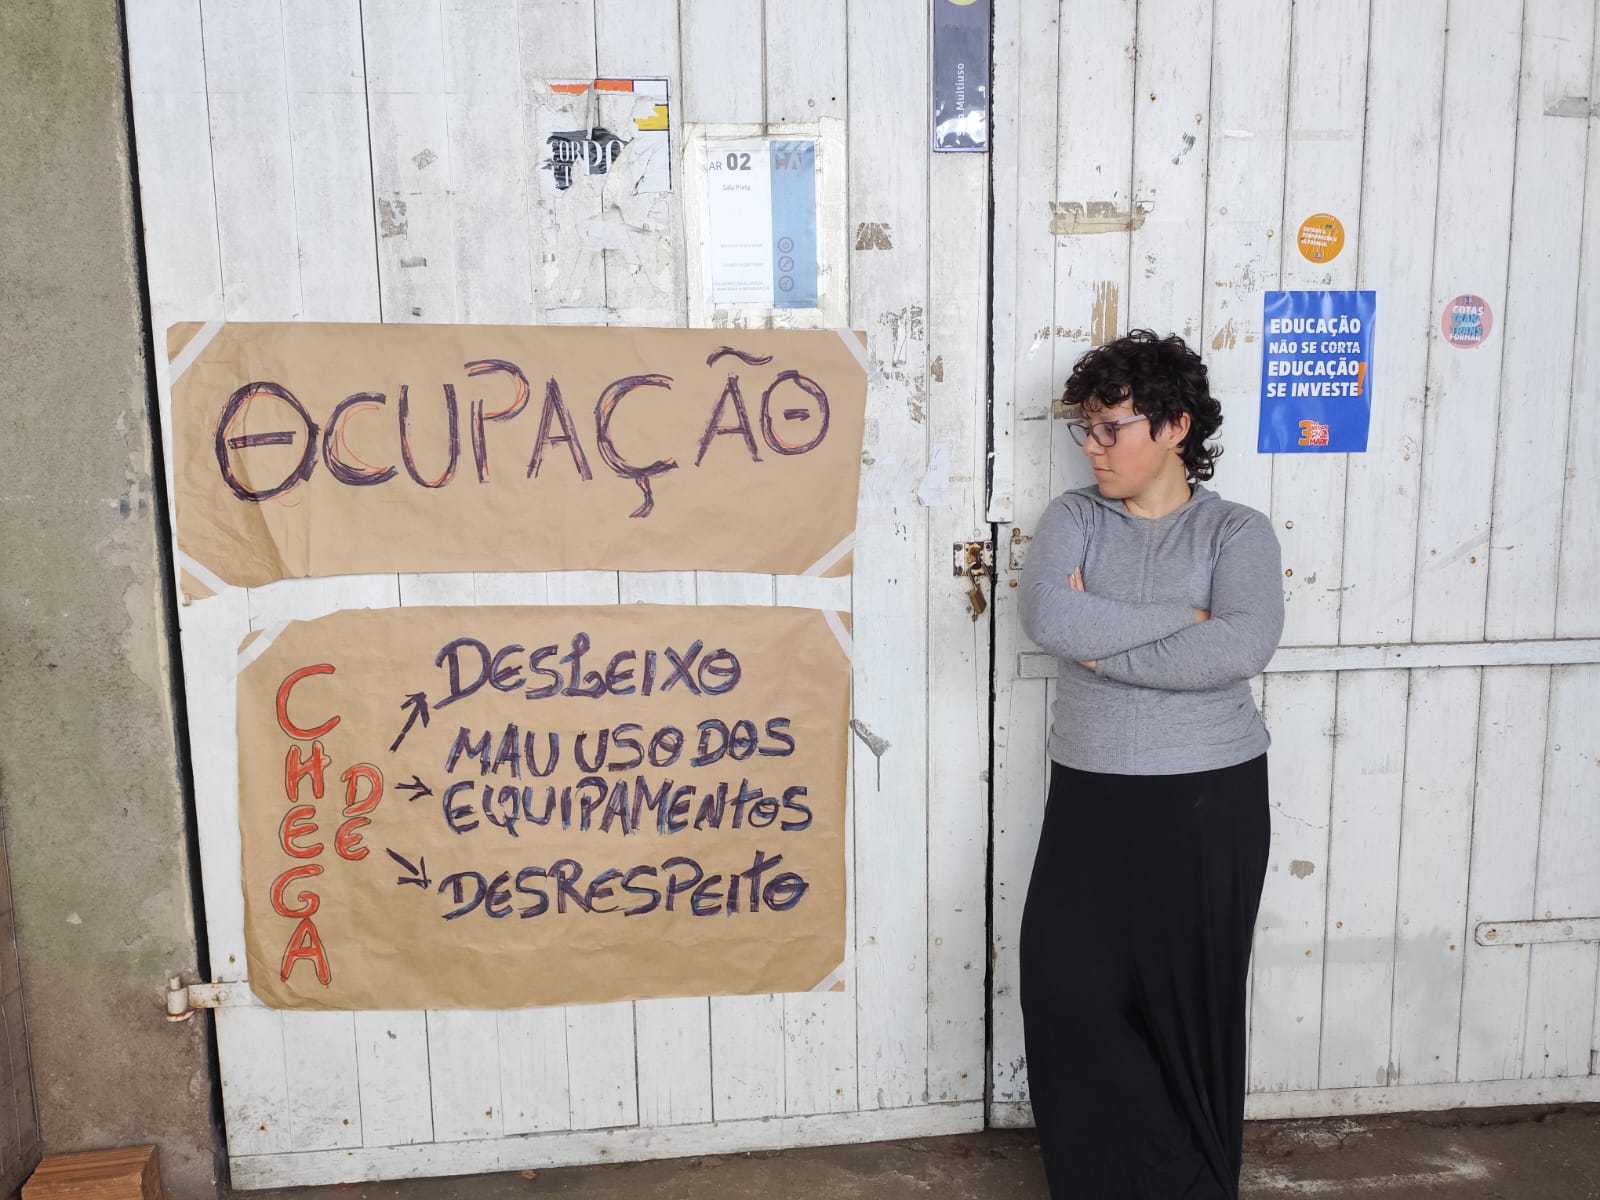 AR 02
Sala Preta
Multiuso
OCUPAÇÃO
CHEGA
DE
DESLEIXO
MAU USO DOS
EQUIPAMENTOS
DESRESPEITO
EDUCAÇÃO
NÃO SE CORTA
EDUCAÇÃO
SE INVESTE!
COTAS
TRANS
FORMAM